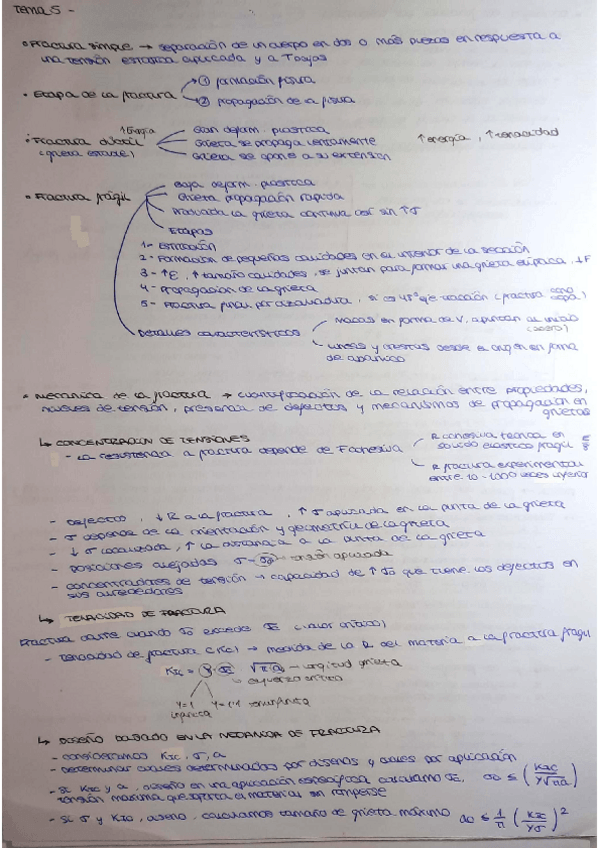 Tema 5 -
• Fractura simple → separación de un cuerpo en dos o más piezas en respuesta a
una tensión estática aplicada y a T bajas
• Etapa de la fractura → ① formación fisura
→ ② propagación de la fisura
• Fractura dúctil ↑Energía Gran deform. plástica
(grieta estable) Grieta se propaga lentamente ↑energía, ↑tenacidad
Grieta se opone a su extensión
• Fractura frágil Baja deform. plástica
Grieta propagación rápida
Iniciada la grieta continua casi sin ↑σ
Etapas
1 - Estricción
2 - Formación de pequeñas cavidades en el interior de la sección
3 - ↑E, ↑tamaño cavidades, se juntan para formar una grieta elíptica, ↓F
4 - Propagación de la grieta
5 - Fractura final por cizalladura, 45º eje tracción (fractura cono copa)
Detalles característicos Marcas en forma de V, apuntan al inicio
(acero)
Líneas y crestas desde el origen en forma
de abanico
• Mecánica de la fractura → cuantificación de la relación entre propiedades,
niveles de tensión, presencia de defectos y mecanismos de propagación en
grietas
↳ CONCENTRACIÓN DE TENSIONES
- La resistencia a fractura depende de F cohesiva R cohesiva teórica en
sólido elástico frágil
R fractura experimental
entre 10-1000 veces inferior
- Defectos, ↓R a la fractura, ↑σ aplicada en la punta de la grieta
- σ depende de la orientación y geometría de la grieta
- ↓σ localizada, ↑ la distancia a la punta de la grieta
- posiciones alejadas σ - σ0 - tensión aplicada
- concentradores de tensión → capacidad de ↑σ0 que tiene los defectos en
sus alrededores
↳ TENACIDAD DE FRACTURA
Fractura ocurre cuando σ0 excede σc (valor crítico)
- Tenacidad de fractura (KIc) → medida de la R del material a la fractura frágil
KIc = Y · σc √(πa) - longitud grieta
↳ esfuerzo crítico
Y=1 Y=1'1
↳ DISEÑO BASADO EN LA MECÁNICA DE FRACTURA
- consideramos KIc, σ, a
- Determinar cuales determinados por diseños y cuales por aplicación
- Si KIc y a, diseño en una aplicación específica calculamos σc, σ0 ≤ (KIc / Y√πa)
tensión máxima que soporta el material sin romperse
- Si σ y KIc, diseño, calculamos tamaño de grieta máximo a0 ≤ 1/π (KIc / Yσ)²